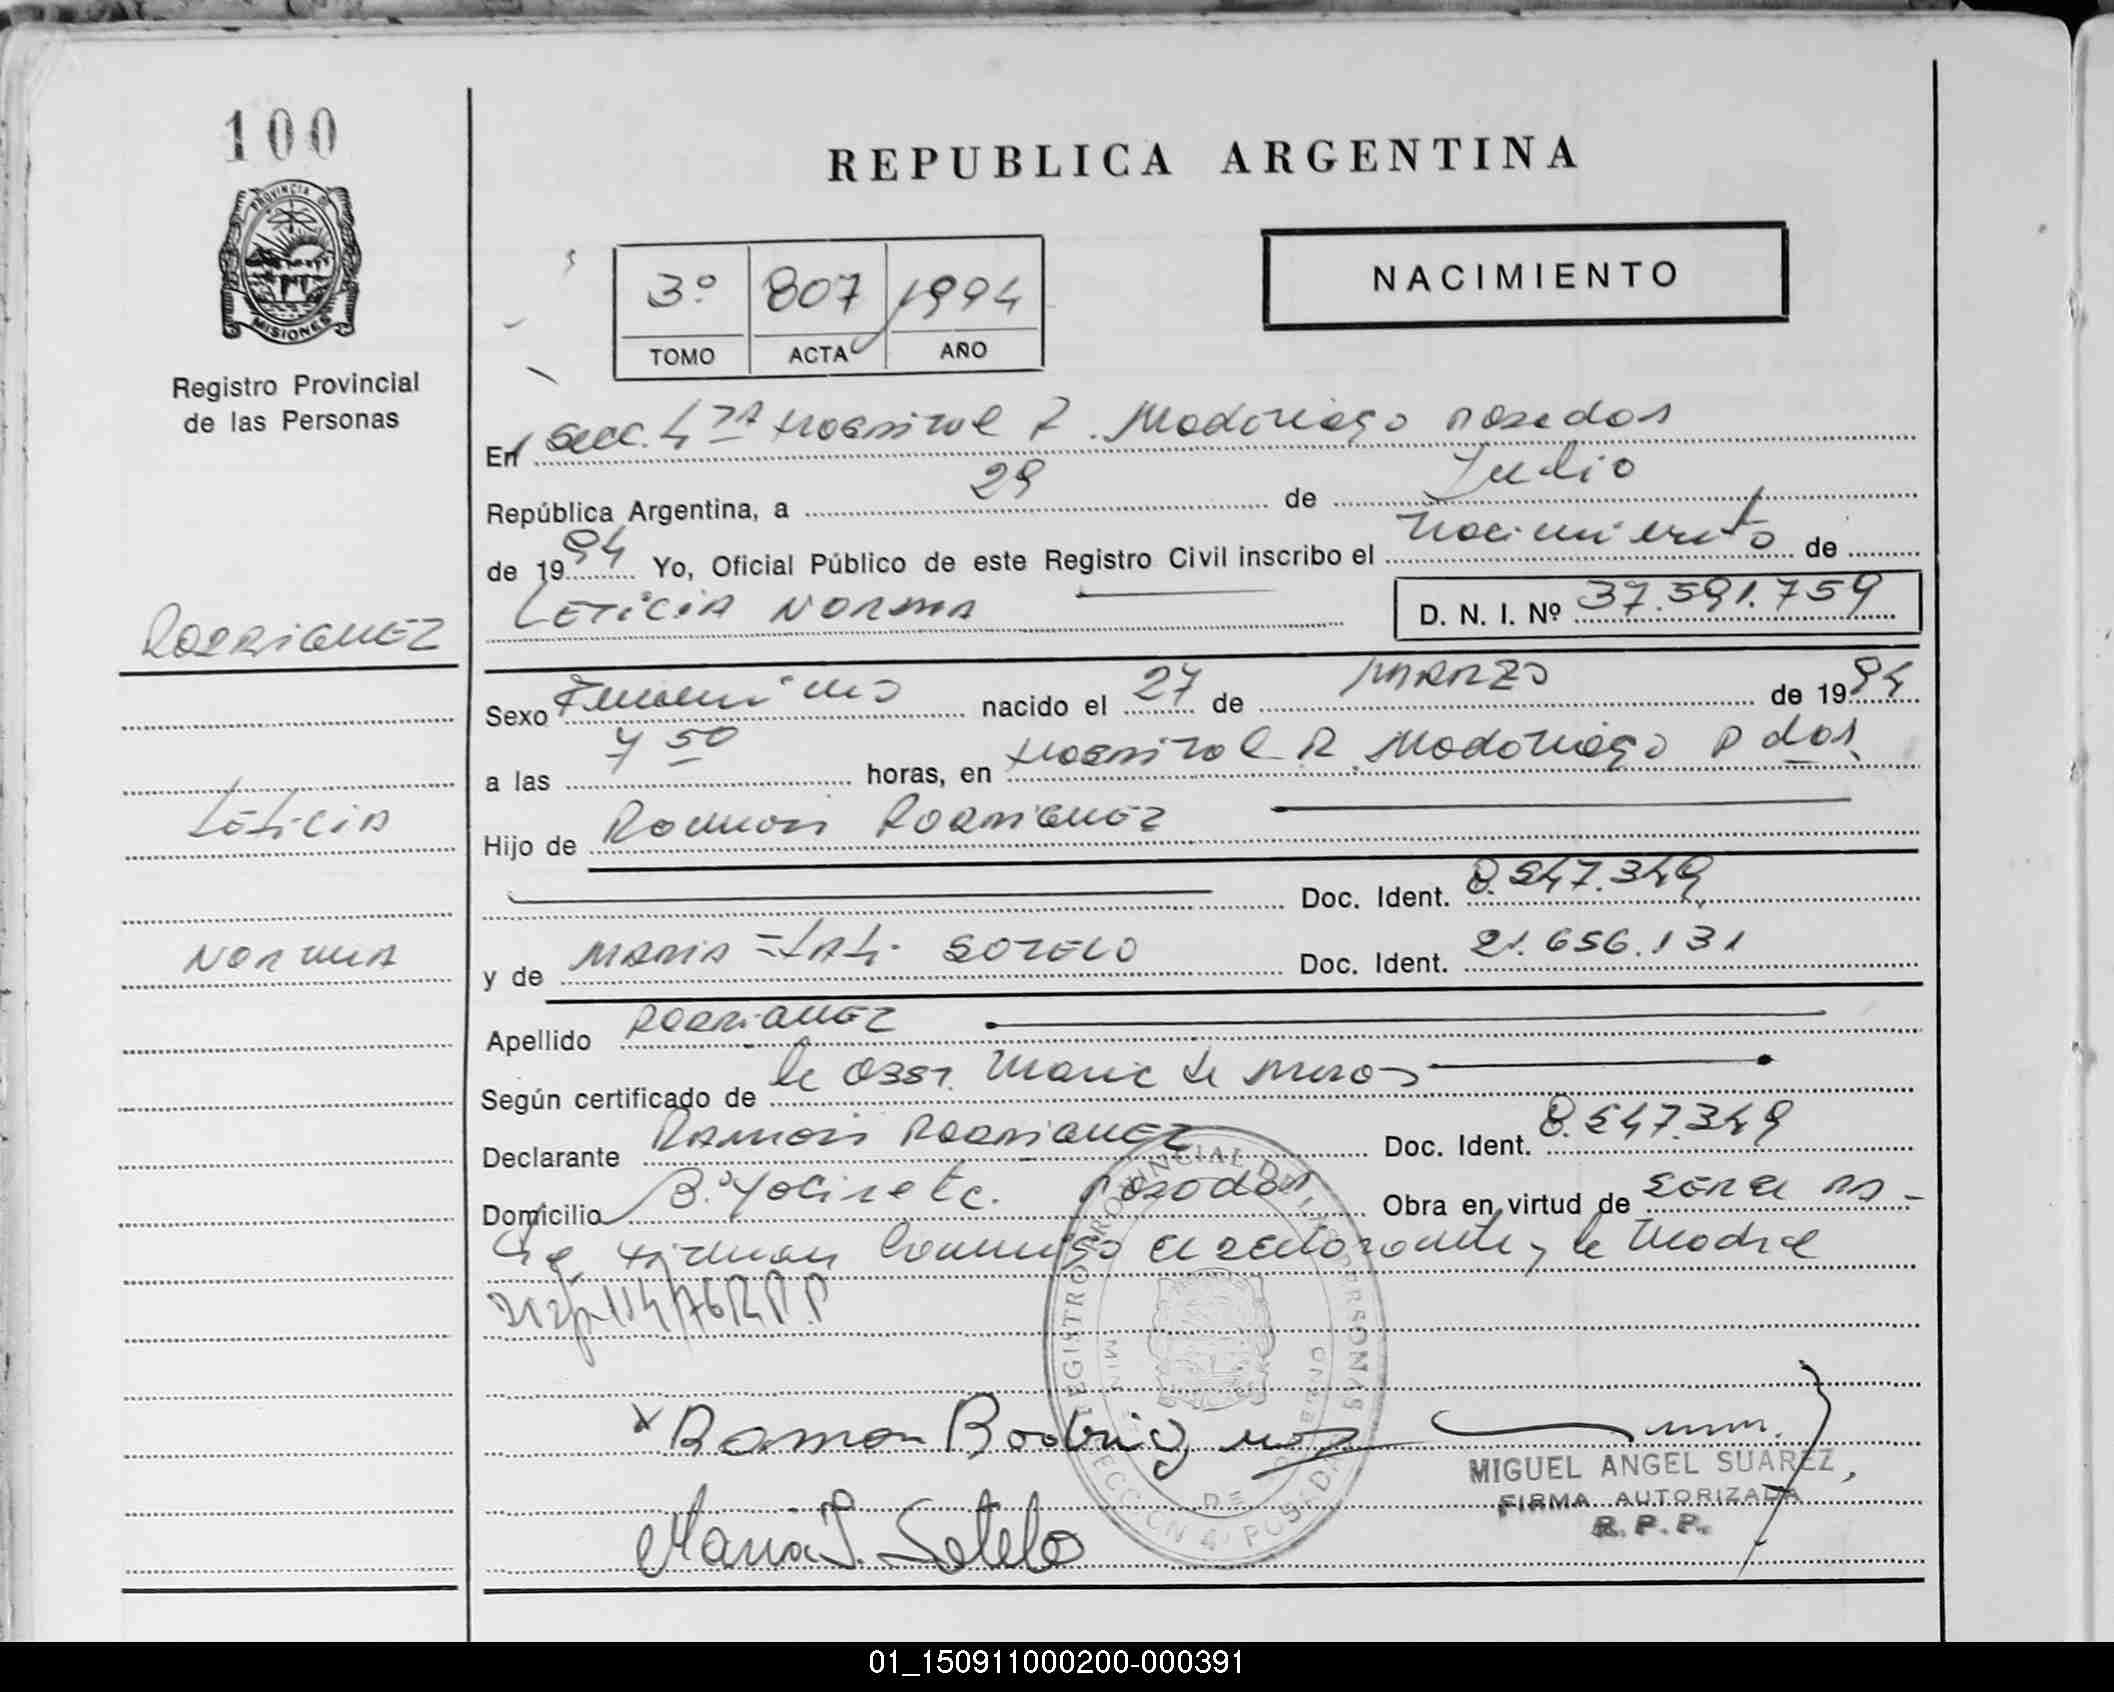 100
PROVINCIA DE
MISIONES
Registro Provincial
de las Personas
REPUBLICA ARGENTINA
NACIMIENTO
3º 807 1994
TOMO ACTA AÑO
En Secc. 4ta Hospital R. Madariaga Posadas
República Argentina, a 29 de Julio
de 1994 Yo, Oficial Público de este Registro Civil inscribo el Nacimiento de
LETICIA NORMA D. N. I. Nº 37.591.759
RODRIGUEZ
Sexo Femenino nacido el 27 de MARZO de 1994
a las 7 50 horas, en Hospital R. Madariaga Pdas.
Leticia
Hijo de Ramon RODRIGUEZ
Doc. Ident. 8.547.349
Norma
y de MARIA SOTELO Doc. Ident. 21.656.131
Apellido RODRIGUEZ
Según certificado de la Obst. Maria de
Declarante Ramon RODRIGUEZ Doc. Ident. 8.547.349
Domicilio Bº Yacireta. Posadas Obra en virtud de
Firman Conmigo el declarante y la Madre
Disp 114/76 R.P.P
REGISTRO PROVINCIAL DE LAS PERSONAS
SECCION 4ª POSADAS
Ramon Rodriguez
MIGUEL ANGEL SUAREZ
FIRMA AUTORIZADA
R. P. P.
Maria I. Sotelo
01_150911000200-000391